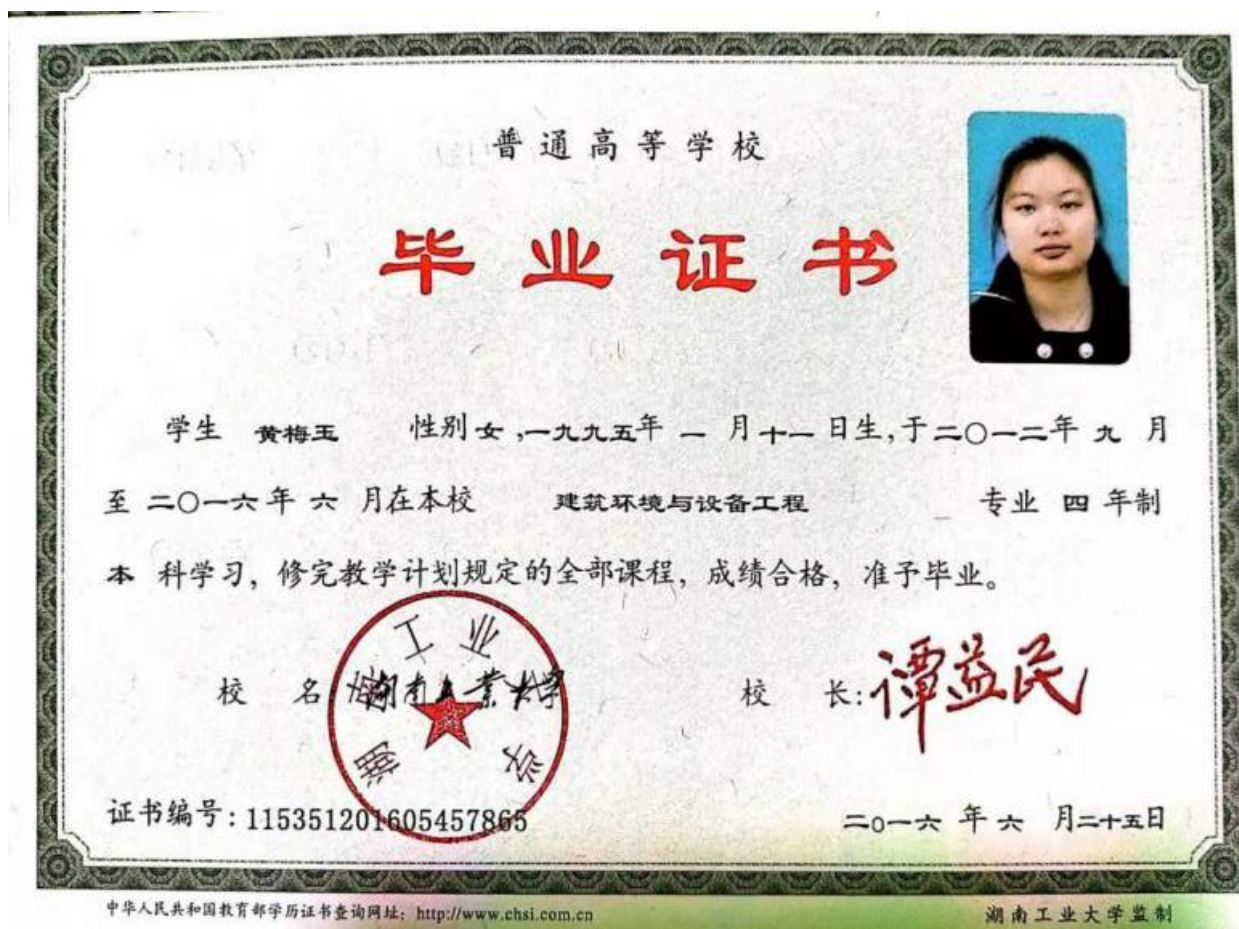 普通高等学校
毕业证书
学生 黄梅玉 性别 女,一九九五年 一 月十一日生,于二〇一二年 九 月
至 二〇一六年 六 月在本校 建筑环境与设备工程 专业 四 年制
本 科学习，修完教学计划规定的全部课程，成绩合格，准予毕业。
湖南工业大学
校 名 湖南工业大学 校 长:谭益民
证书编号:115351201605457865 二〇一六 年 六 月二十五日
中华人民共和国教育部学历证书查询网址: http://www.chsi.com.cn 湖南工业大学监制